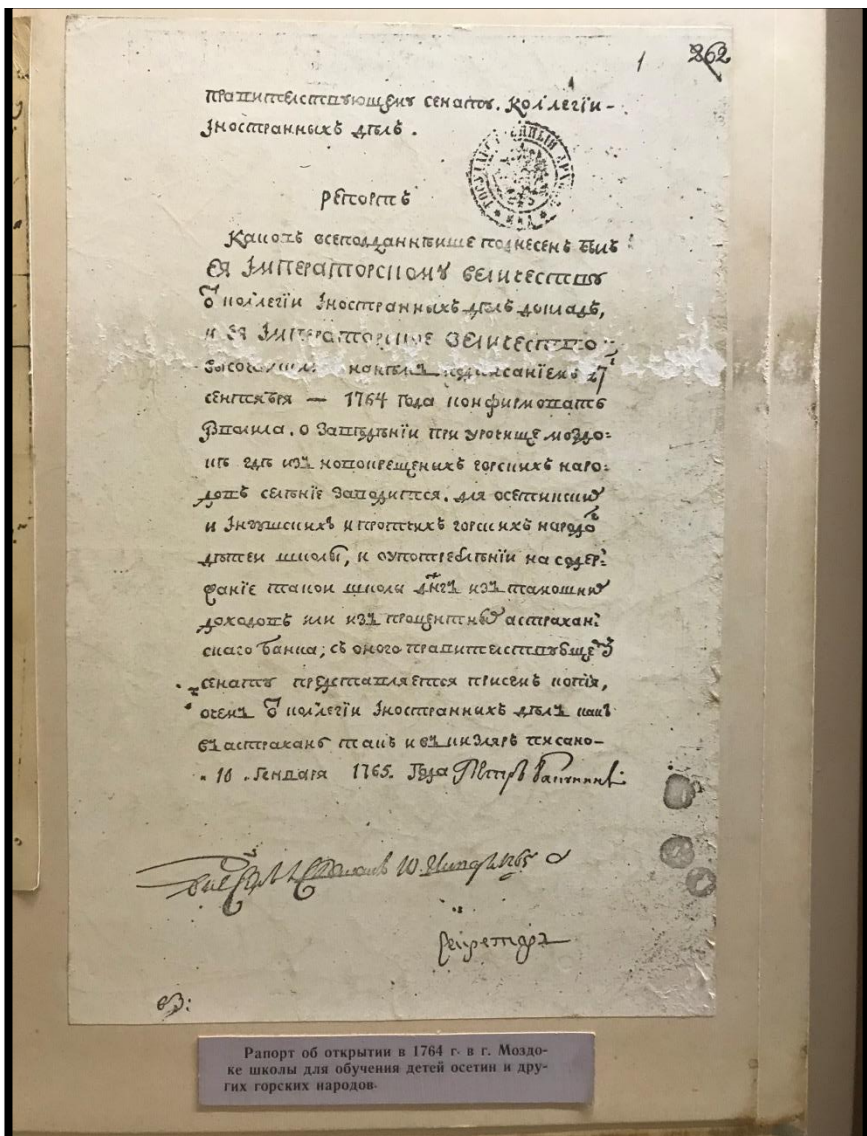 1 262
правителствующему сенату. Коллегии-
Іностранныхъ дѣлъ.
ГОСУДАРСТВЕННЫЙ АРХИВ
репортъ
Каковъ всеподданнѣише поднесенъ былъ
ЕЯ ІМПЕРАТОРСКОМУ ВЕЛИЧЕСТВУ
ѿ коллегіи Іностранныхъ дѣлъ докладъ,
и ЕЯ ІМПЕРАТОРСКОЕ ВЕЛИЧЕСТВО
подписаніемъ 27
сентября — 1764 года конфирмовать
о заведѣніи при урочище моздо=
кѣ гдѣ изъ новокрещеныхъ горскихъ наро=
довъ селѣніе заводится. для осетинских
и Інгушскихъ и протчихъ горскихъ народовъ
дѣтеи школы, и оупотреблѣніи на содер=
жаніе такои школы дѣнгъ изъ тамошних
доходовъ или изъ процентных астрахан=
скаго банка; съ оного правителствующему
сенату представляется присемъ копія,
очемъ ѿ коллегіи Іностранныхъ дѣлъ какъ
въ астрахань такъ и въ кизляръ писано-
" 10 " Генваря 1765. Года Петръ
10. 1765
секретарь
Рапорт об открытии в 1764 г. в г. Моздо-
ке школы для обучения детей осетин и дру-
гих горских народов.